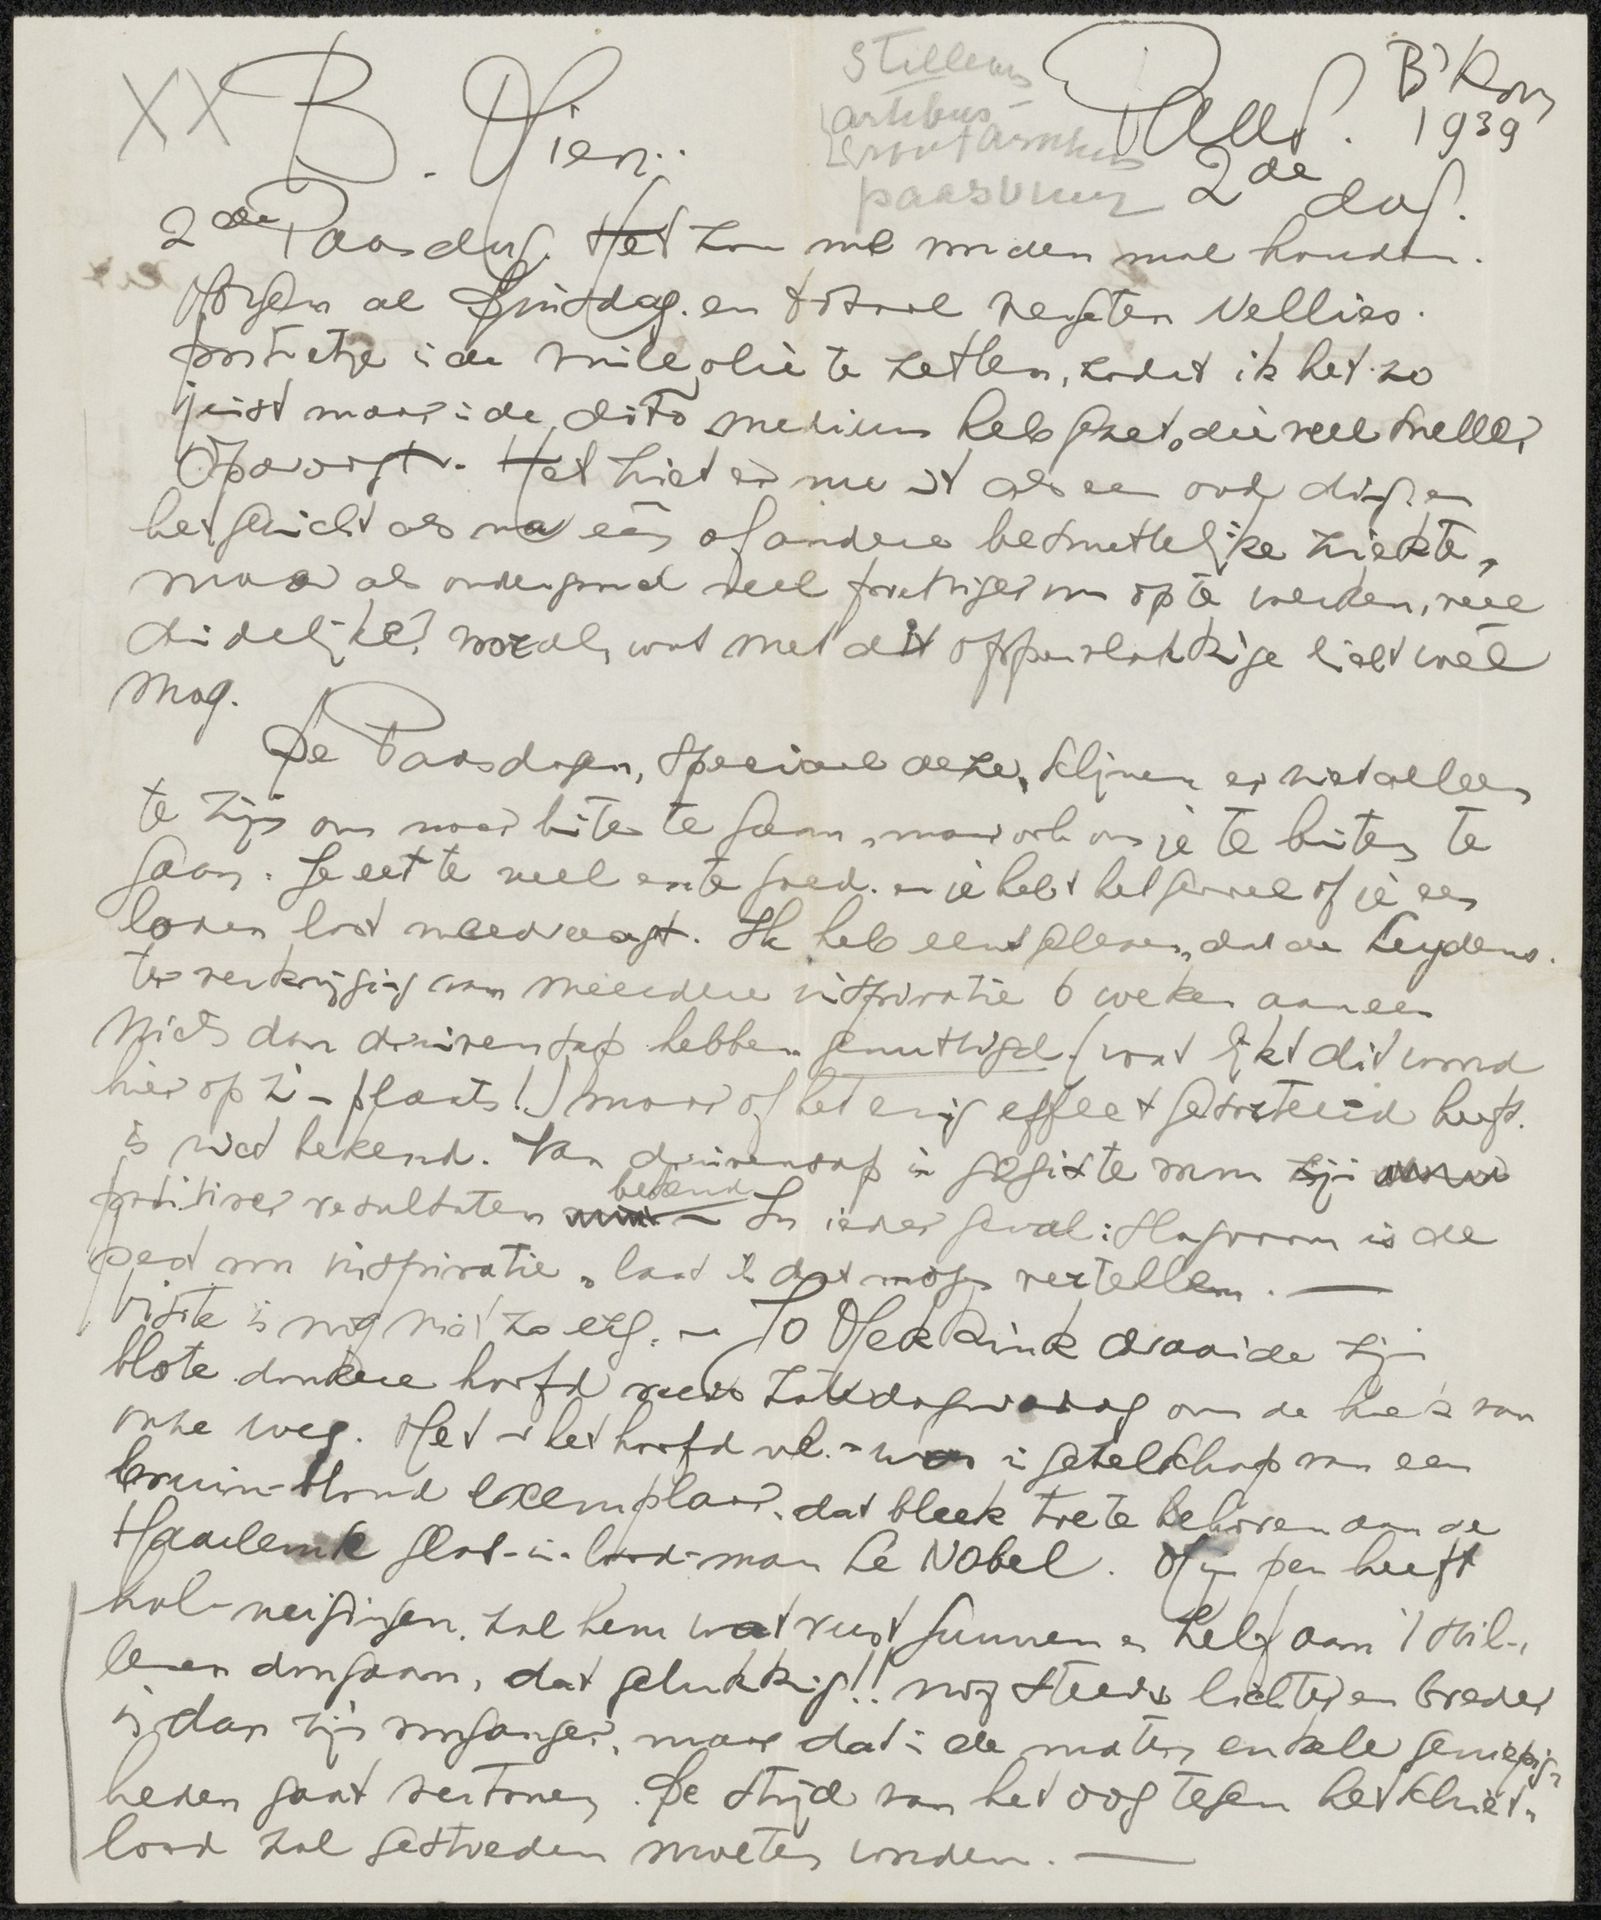 XX B. Mien:
Stilleven
artibus -
paasvuur
Paas. B'Rom
1939
2de dag.
2de Paasdag. Het zou me worden mal houden.
Morgen al Dinsdag. en totaal vergeten Nellies.
portretje i de vuile olie te zetten, zodat ik het zo
juist maar i de dito medium heb gezet, die veel sneller
opdroogt. Het ziet er nu uit als een oud ding en
het gezicht als na één of andere besmettelijke ziekte,
maar als ondergrond veel prettiger om op te werken, veel
duidelijker vooral, wat met dit oppervlakkige licht wel
mag.
De Paasdagen, speciaal deze, schijnen er niet alleen
te zijn om naar buiten te gaan, maar ook om je te buiten te
gaan. Je eet te veel en te goed. en je hebt het gevoel of je een
loden last meedraagt. Ik heb eens gelezen, dat de Leydens.
ter verkrijging van meerdere inspiratie 6 weken aaneen
niets dan druivensap hebben genuttigd. (wat lijkt dit woord
hier op zi - plaats!) maar of het enig effect gesorteerd heeft.
is niet bekend. Van druivensap in gegiste vorm zijn
positiever resultaten bekend - In ieder geval: slagroom is de
pest voor inspiratie, laat ik dat mogen vertellen. —
Visite is nog niet zo erg. — Jo Mekkink draaide zijn
blote donkere hoofd reeds Zaterdagmiddag om de hek van
onze weg. Het - het hoofd nl. - was i gezelschap van een
bruin-blond exemplaar, dat bleek toe te behoren aan de
Haarlemse glas-in-lood-man Le Nobel. Mijn pen heeft
kul-neigingen. zal hem wat rust gunnen en zelf aan 't stil-
leven doorgaan, dat gelukkig!! nog steeds lichter en breder
is dan zijn voorganger, maar dat i de noten enkele geniepig-
heden gaat vertonen. De strijd van het oog tegen het schiet-
lood zal gestreden moeten worden. —